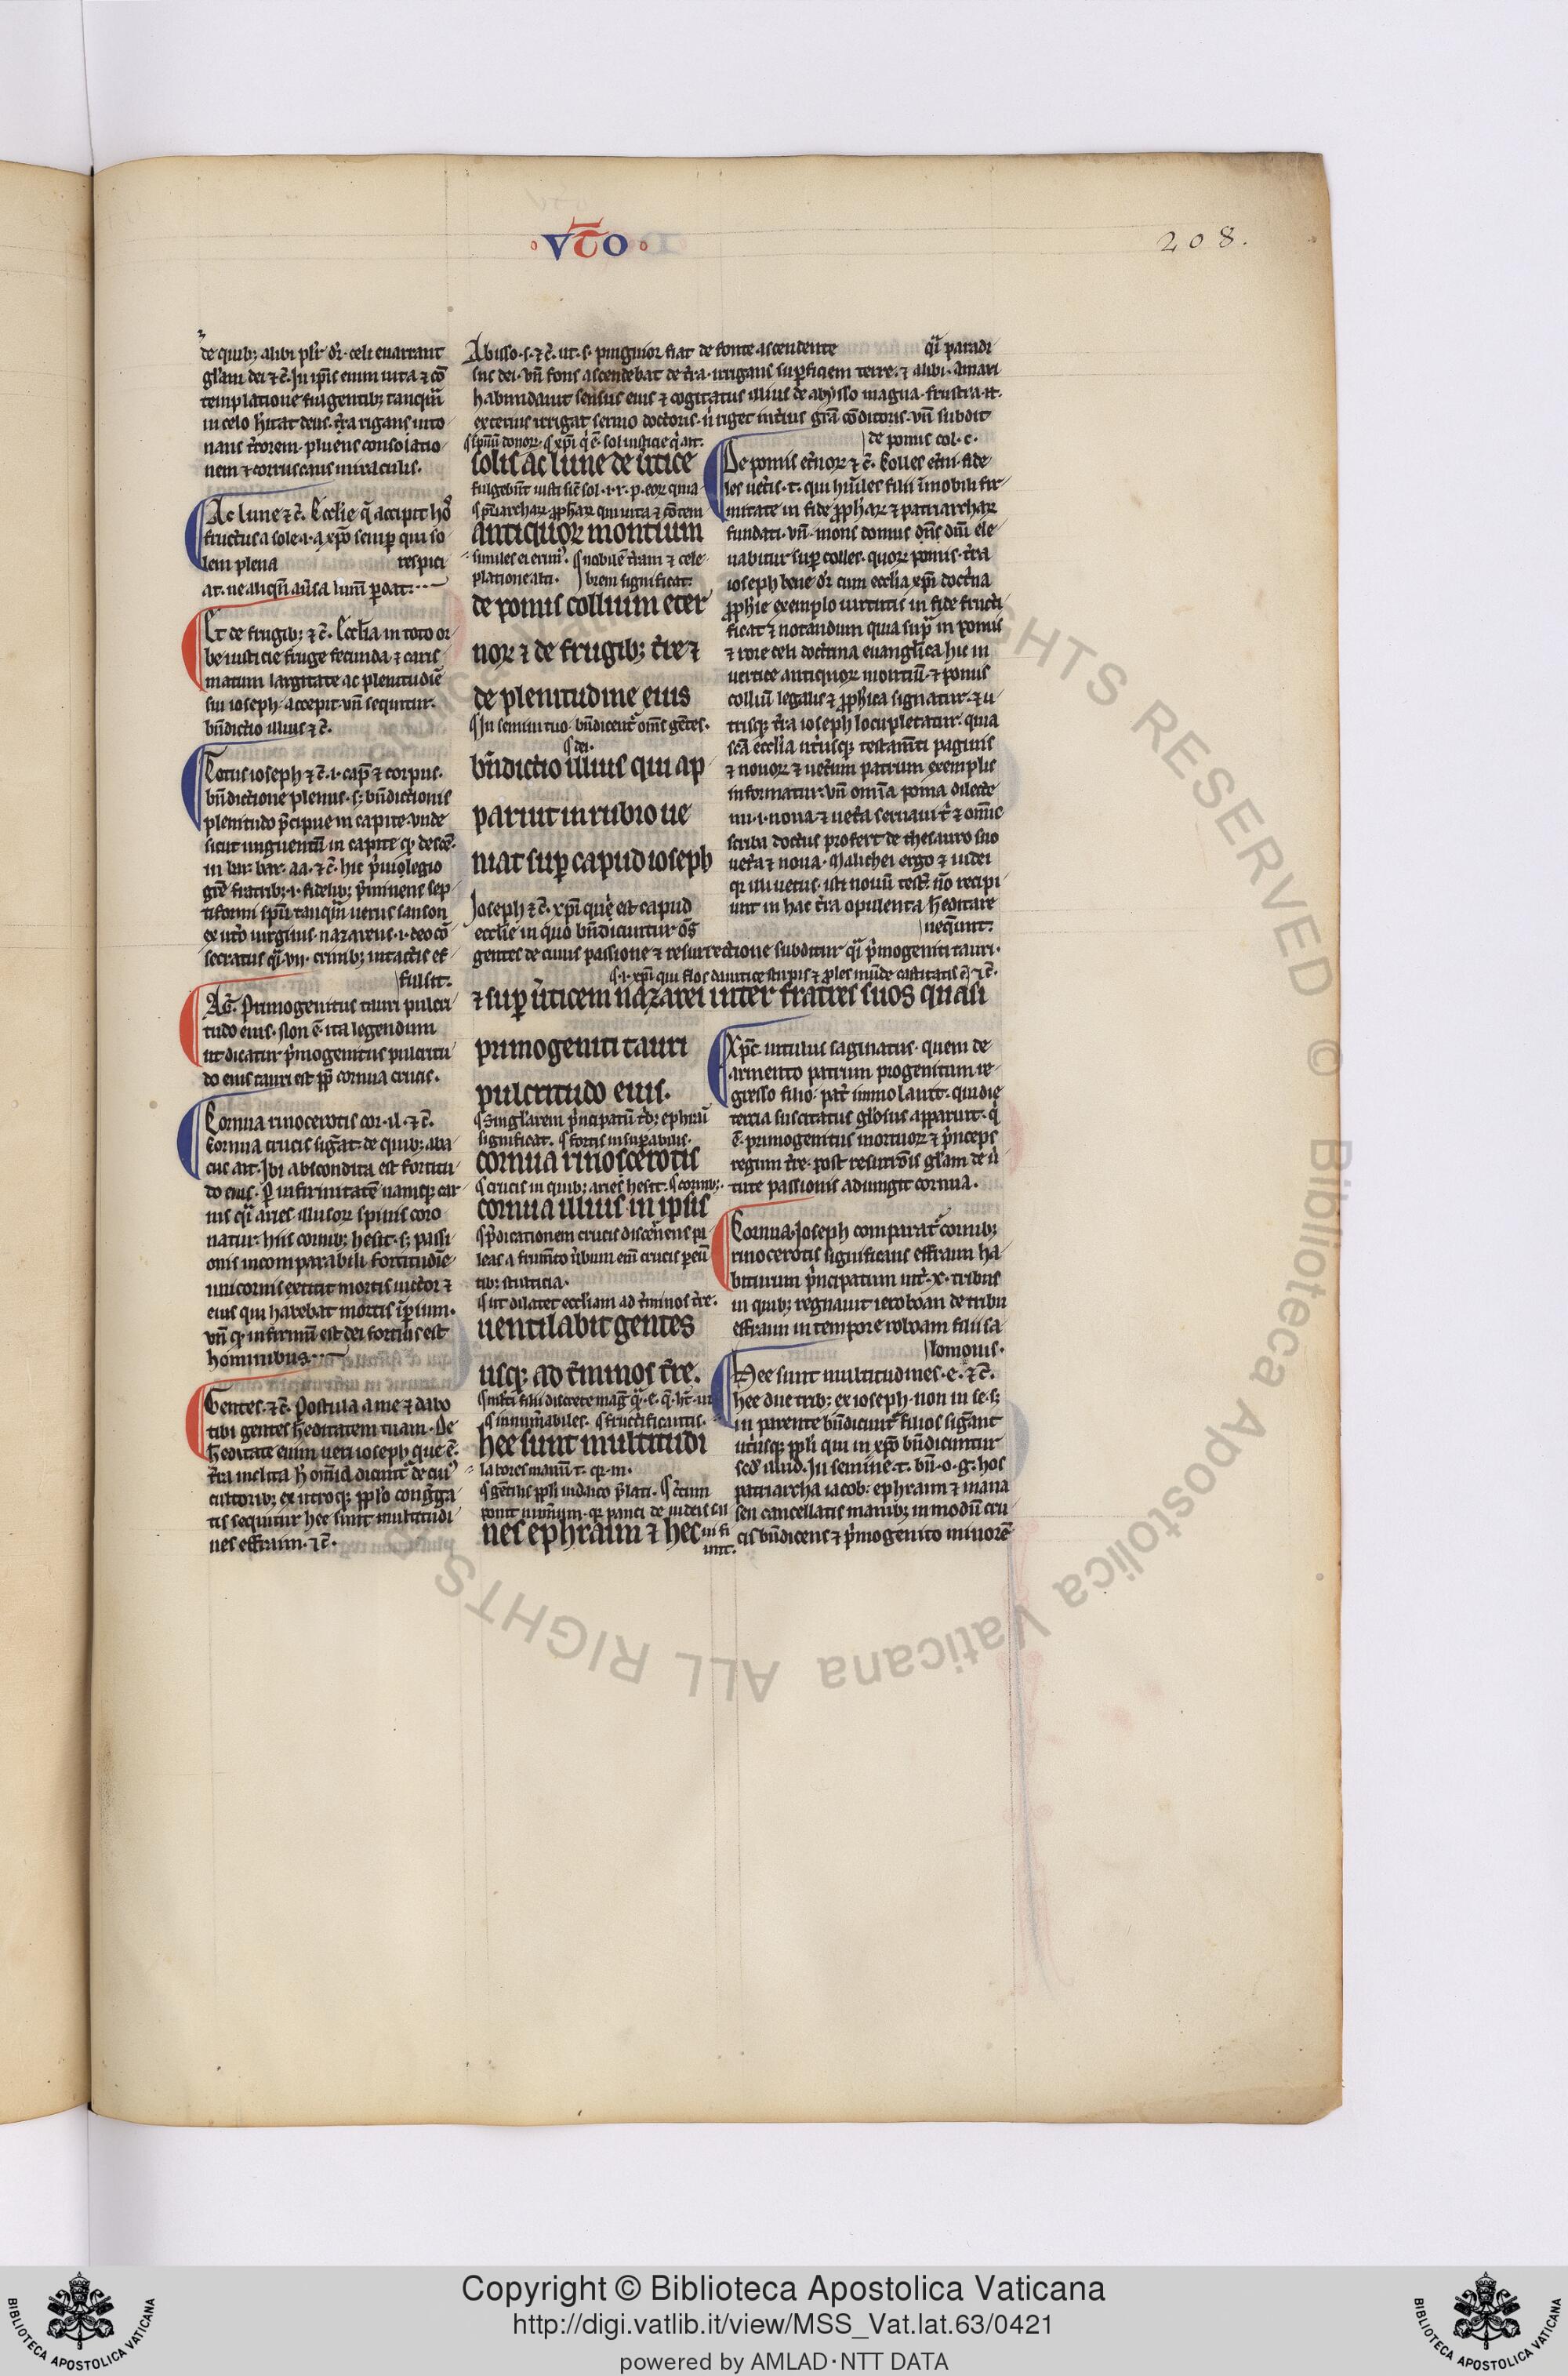 VT̄O
208.
de quib; alibi pl̄r dr̄. celi enarrant
gl̄am dei ⁊ c̄. In ip̄is enim uita ⁊ cō
templatione fulgentib; tanqm̄
in celo hītat deus. t̄ra rigans into
nans t̄rorem. pluens consolatio
nem ⁊ corruscans miraculis.
Ac lune ⁊ c̄. Ecclie q̄ accipit
fructus a sole .i. a xp̄o semꝑ qui so
lem plena respici
at. ne aliqn̄ auersa lum̄ ꝑdat.
Et de frugib; ⁊ c̄. Eccl̄ia in toto or
be iusticie fruge fecunda ⁊ caris
matum largitate ac plenitudīe
sui ioseph. accepit. vn̄ sequitur.
bn̄dictio illius ⁊ c̄.
Totus ioseph ⁊ c̄. .i. cap̄ ⁊ corpus.
bn̄dictione plenus. s; bn̄dictionis
plenitudo p̄cipue in capite. vnde
sicut unguentū in capite qd̄ descē.
in bar. bar. aa. ⁊ c̄. hic p̄uilegio
gr̄e fratrib; .i. fidelib; p̄minens sep
tiformi sp̄u tanqm̄ uerus sanson
ex ut̄o uirginis. nazareus .i. deo cō
secratus q̄i .vii. crinib; intactis ef
fulsit.
AG̅. Primogenitus tauri pulcri
tudo eius. Non ē ita legendum
ut dicatur p̄mogenitus pulcritu
do eius tauri est ꝓp̄ cornua crucis.
Cornua rinocerotis cor. il. ⁊ c̄.
Cornua crucis sigt̄at. de quib; aba
cuc ait. Ibi abscondita est fortitu
do eius. Ꝑ infirmitatē namq; car
nis q̄i aries illusor̄ spinis coro
natur. hiis cornib; hesit. s; passi
onis incomparabili fortitudīe
unicornis extitit mortis uictor ⁊
eius qui habebat mortis īꝑium.
vn̄ qd̄ infirmū est dei fortius est
hominibus.
Gentes. ⁊ c̄. Postula a me ⁊ dabo
tibi gentes h̄editatem tuam. De
h̄editate enim ueri ioseph que ē.
t̄ra inclita h̄ om̄ia dicunt̄. de cui
cultorib; ex utroq; ꝓplo congḡa
tis sequitur hee sunt multitudi
nes effraim. ⁊ c̄.
Abisso .s. ⁊ c̄. ut .s. pinguior fiat de fonte ascendente q̄i paradi
sus dei. vn̄ fons ascendebat de t̄ra. irrigans suꝑficiem terre. ⁊ alibi. Amari
habundauit sensus eius ⁊ cogitatus illius de abysso magna. frustra .n.
exterius irrigat sermo doctoris. n̄ riget int̄ius grā cōditoris. vn̄ subdit
sp̄uū donor̄. xp̄i q̄ ē. sol iusticie q̄ ait.
solis ac lune de u̾tice
fulgebūt iusti sic̄ sol .i. r. p. eor̄ quia
p̄riarchar̄ ꝓphar̄ qui uita ⁊ cōtem
antiquor̄ montium
similes ei erim̄. nobilē t̄ram ⁊ cele
platione alti. brem significat.
de pomis collium eter
nor̄ ⁊ de frugib; t̄re ⁊
de plenitudine eius
In semini tuo. bn̄dicent̄ om̄s gētes.
dei.
bn̄dictio illius qui ap
paruit in rubro ue
niat suꝑ capud ioseph
Ioseph ⁊ c̄. xp̄i que est capud
ecclie in quo bn̄dicuntur om̄s
gentes de cuius passione ⁊ resurrectione subditur q̄i p̄mogeniti tauri.
.i. xp̄i qui flos dauitice stirpis ⁊ ꝓles mūde castitatis ē ⁊ c̄.
⁊ suꝑ u̾ticem nazarei inter fratres suos quasi
primogeniti tauri
pulcritudo eius.
Singl̄arem p̄ncipatū t̄b; ephraī
significat. fortis insuꝑabilis.
cornua rinoscerotis
crucis in quib; aries hesit. cornib;.
cornua illius. in ipsis
p̄dicationem crucis discernens pa
leas a frumēto u̾bum enī crucis ꝑeū
tib; stulticia.
ut dilatet eccl̄iam ad t̄minos t̄re.
uentilabit gentes
usq; ad t̄minos t̄re.
innum̄abiles. fructificantis.
hee sunt multitudi
labores manū t. qr̄ m.
gētilis ꝓpli iudaico p̄lati. c̄tum
ponit num̄um. qr̄ pauci de iudeis sal
nes ephraim ⁊ hec
de pomis col. e.
De pomis et̄nor̄ ⁊ c̄. Colles et̄ni fide
les uet̄is .t. qui hūiles filii īmobili fir
mitate in fide ꝓphar̄ ⁊ patriarchar̄
fundati. vn̄. mons domus dn̄s dn̄i ele
uabitur suꝑ colles. quor̄ pomis. t̄ra
ioseph bene dr̄ cum eccl̄ia xp̄i doct̄na
ꝓphie exemplo uirtutis in fide fructi
ficat ⁊ notandum quia supra in pomis
⁊ rore celi doctrina euanglīca hic in
uertice antiquor̄ montiū. ⁊ pomis
colliū legalis ⁊ ꝓphica signatur. ⁊ u
trisq; t̄ra ioseph locupletatur. quia
scā eccl̄ia ut̄usq; testam̄ti paginis
⁊ nouor̄ ⁊ uet̄um patrum exemplis
informatur. vn̄ om̄ia poma dilecte
mi .i. noua ⁊ uet̄a seruaui t̄ ⁊ om̄is
scriba doctus profert de thesauro suo
uet̄a ⁊ noua. Manichei ergo ⁊ iudei
qr̄ illi uetus. isti nouū test̄. nō recipi
unt in hac t̄ra opulenta h̄editare
neq̄unt.
Xp̄c. uitulus saginatus. quem de
armento patrum progenitum re
gresso filio. pat̄ immolauit. qui die
tercia suscitatus gl̄osus apparuit. q̄
ē. primogenitus mortuor̄ ⁊ p̄nceps
regum t̄re. post resurrc̄ōis gl̄am de u̾
tute passionis adiungit cornua.
Cornua. Ioseph comparat̄ cornib;
rinocerotis significans effraim ha
biturum p̄ncipatum int̄ .x. tribus
in quib; regnauit ieroboan de tribu
effraim in tempore roboam filii sa
lomonis.
Hee sunt multitudines .e. ⁊ c̄.
hee due trib; ex ioseph. non in se. s;
in parente bn̄dicunt̄ filios sigt̄ant
ut̄iusq; ꝓpli qui in xp̄o bn̄dicuntur
scd̄ illud. In semine .t. bn̄. o. g. hos
patriarcha iacob; ephraim ⁊ mana
sen cancellatis manib; in modū cru
cis bn̄dicens ⁊ p̄mogenito minorē
ALL RIGHTS RESERVED © Biblioteca Apostolica Vaticana
Copyright © Biblioteca Apostolica Vaticana
http://digi.vatlib.it/view/MSS_Vat.lat.63/0421
powered by AMLAD·NTT DATA
BIBLIOTECA APOSTOLICA VATICANA
BIBLIOTECA APOSTOLICA VATICANA